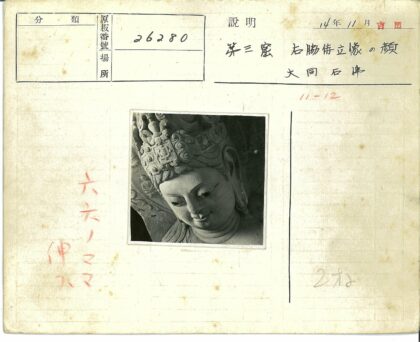 分類
原板番號場所
26280
説明
14年11月
第三窟 右脇侍立像の顔
大同石佛
11-12
六六ノママ
伸ス